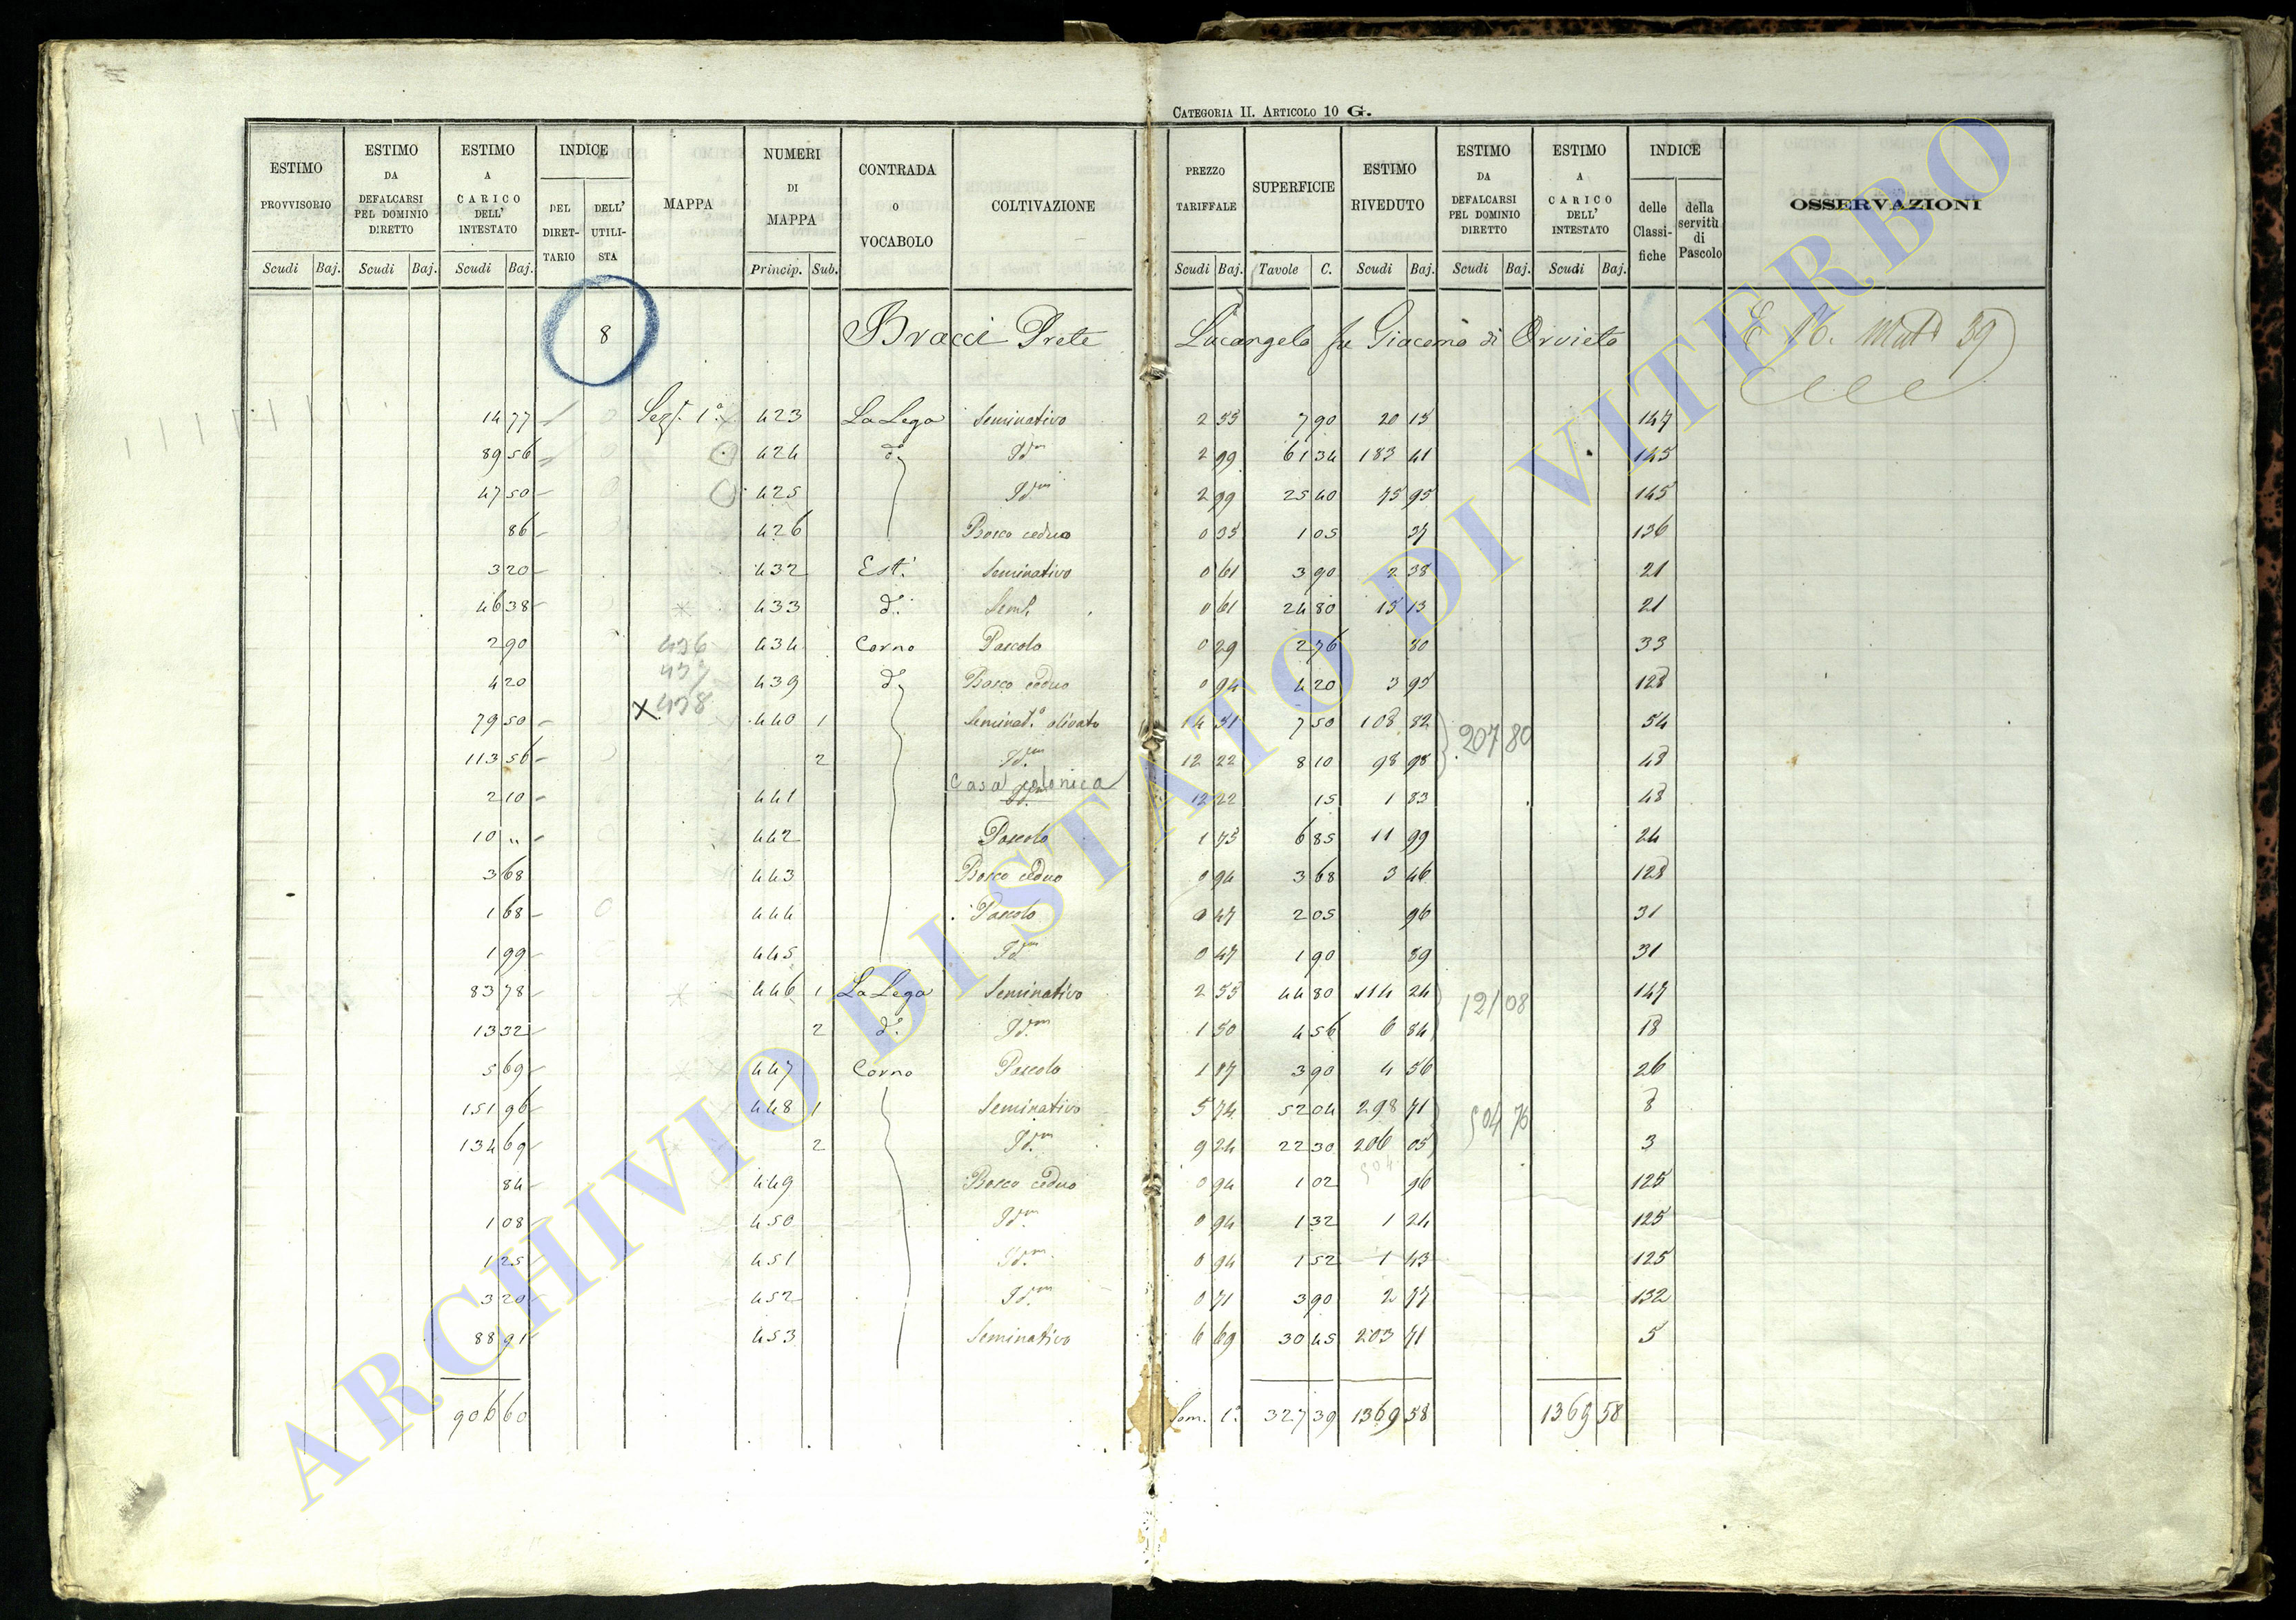 CATEGORIA II. ARTICOLO 10 G.
ESTIMO PROVVISORIO Scudi Baj. ESTIMO DA DEFALCARSI PEL DOMINIO DIRETTO Scudi Baj. ESTIMO A CARICO DELL' INTESTATO Scudi Baj. INDICE DEL DIRETTARIO DELL' UTILISTA MAPPA NUMERI DI MAPPA Princip. Sub. CONTRADA o VOCABOLO COLTIVAZIONE PREZZO TARIFFALE Scudi Baj. SUPERFICIE Tavole C. ESTIMO RIVEDUTO Scudi Baj. ESTIMO DA DEFALCARSI PEL DOMINIO DIRETTO Scudi Baj. ESTIMO A CARICO DELL' INTESTATO Scudi Baj. INDICE delle Classifiche della servitù di Pascolo OSSERVAZIONI
8 Bracci Prete Lucangelo fu Giacomo di Orvieto 39
14 77 Sez. 1ª 423 La Lega Seminativo 2 55 7 90 20 15 147
89 56 424 d° Idm 2 99 61 34 183 41 145
47 50 425 Idm 2 99 25 40 75 95 145
86 426 Bosco ceduo 0 35 1 05 37 136
3 20 432 Est. Seminativo 0 61 3 90 2 38 21
46 38 433 d° Sem. 0 61 24 80 15 13 21
2 90 436 434 Corno Pascolo 0 29 2 76 80 33
4 20 437 439 d° Bosco ceduo 0 94 4 20 3 95 128
79 50 X 438 440 1 Seminat° olivato 14 51 7 50 108 82 207 80 54
113 56 2 Idm 12 22 8 10 98 98 48
Casa colonica
2 10 441 Idm 12 22 15 1 83 48
10 " 442 Pascolo 1 75 6 85 11 99 24
3 68 443 Bosco ceduo 0 94 3 68 3 46 128
1 68 444 Pascolo 0 47 2 05 96 31
1 99 445 Idm 0 47 1 90 89 31
83 78 446 1 La Lega Seminativo 2 55 44 80 114 24 121 08 147
13 32 2 d° Idm 1 50 4 56 6 84 18
5 69 447 Corno Pascolo 1 17 3 90 4 56 26
151 96 448 1 Seminativo 5 74 52 04 298 71 504 76 8
134 69 2 Idm 9 24 22 30 206 05 3
84 449 Bosco ceduo 0 94 1 02 504 96 125
1 08 450 Idm 0 94 1 32 1 24 125
1 25 451 Idm 0 94 1 52 1 43 125
3 20 452 Idm 0 71 3 90 2 77 132
88 91 453 Seminativo 6 69 30 45 203 71 5
906 60 Som. 1ª 327 39 1369 58 1369 58
ARCHIVIO DI STATO DI VITERBO